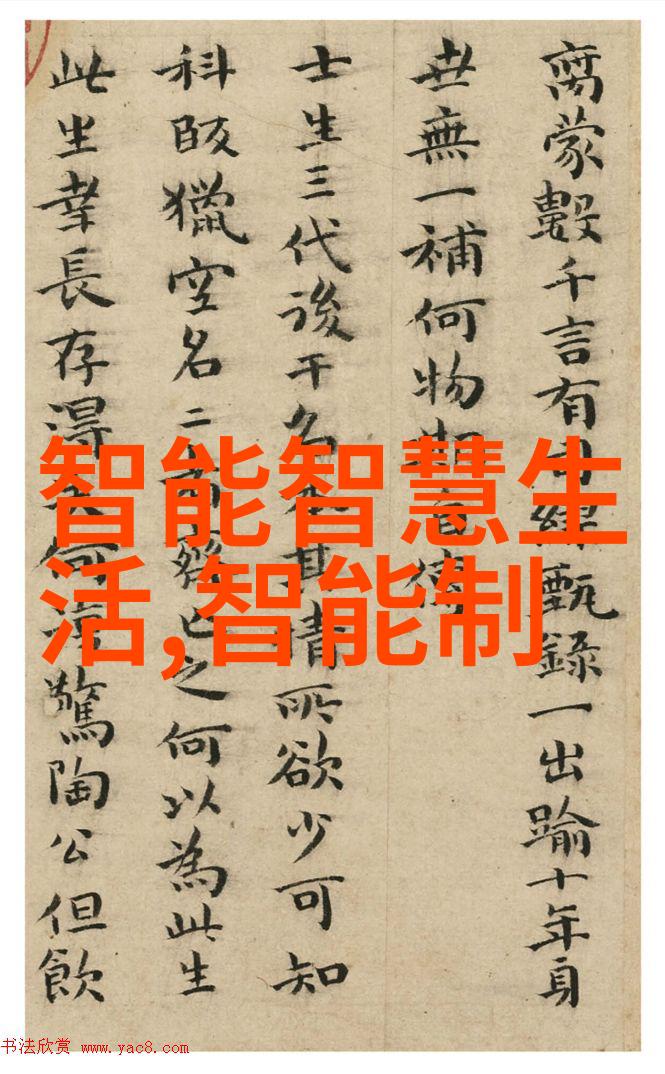 离蒙數千言有司繆甄録一出踰十年身
世無一補何物
士生三代後干名 其情所欲少可知
科段獵空名二 已之何以為此生
此生幸長存得 何 驚陶公但飲
智能智慧生
活,智能制
书法欣赏 www.yac8.com